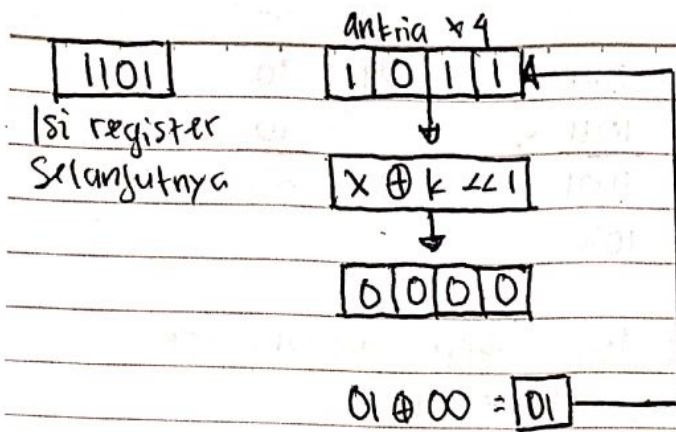 antria x 4
1101
1 0 1 1
Isi register
Selanjutnya
x ⊕ k <<1
0 0 0 0
01 ⊕ 00 = 01